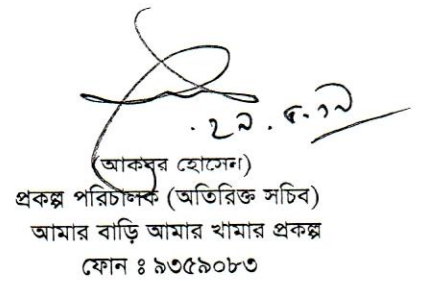 ২৯.৫.১৯
(আকবর হোসেন)
প্রকল্প পরিচালক (অতিরিক্ত সচিব)
আমার বাড়ি আমার খামার প্রকল্প
ফোন ঃ ৯৩৫৯০৮৩